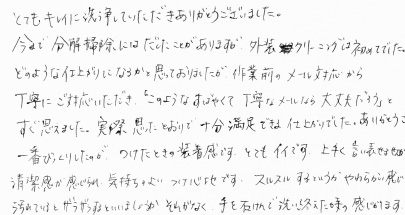 とてもキレイに洗浄していただきありがとうございました。
今まで分解掃除にはだしたことがありますが 外装クリーニングは初めてでした。
どのような仕上がりになるかと思っておりましたが 作業前のメール対応から
丁寧にご対応いただき、「このようなすばやくて丁寧なメールなら大丈夫だろう」と
すぐ思えました。実際 思ったとおりで十分満足できる仕上がりでした。ありがとうご
一番びっくりしたのが、つけたときの装着感です。とてもイイです。上手く言い表せませんが
清潔感が感じられ、気持ちよいつけ心地です。スルスルするというかやわらかい感じ
汚れているとザラザラするといいましょうか それがなく、手を石けんで洗い終えた様な感じがします。